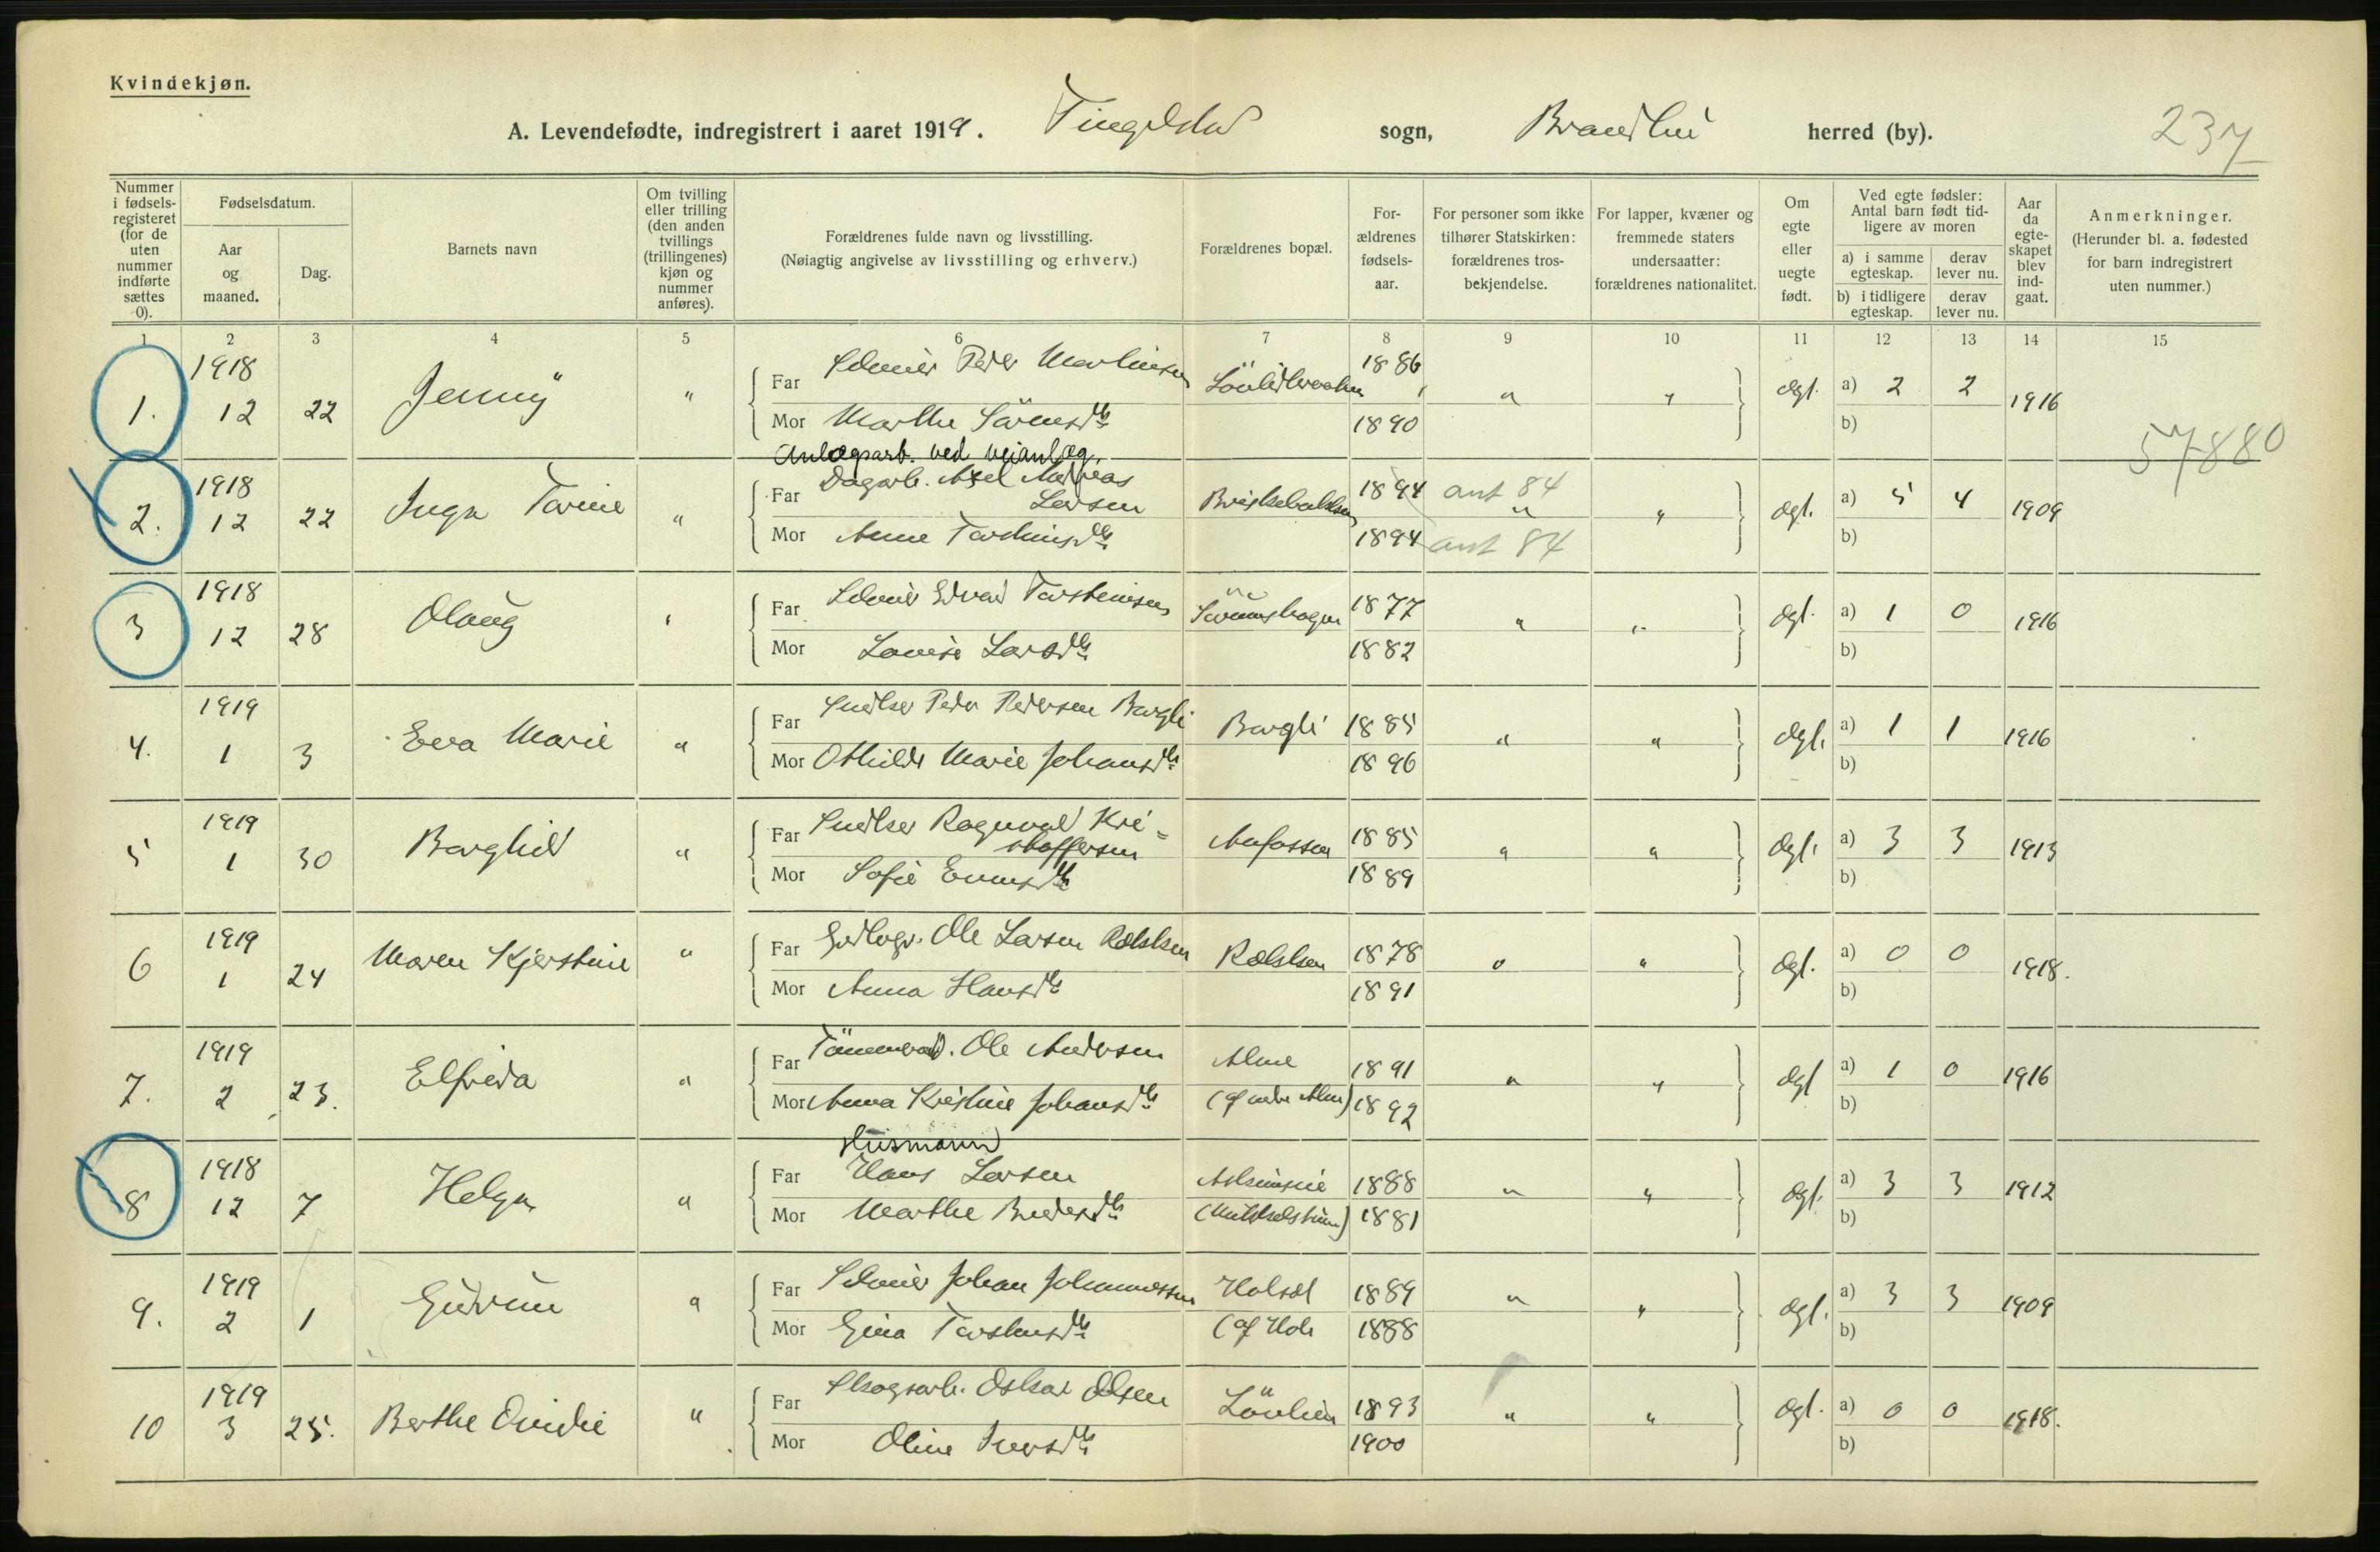 Kvindekjøn.
A. Levendefødte, indregistrert i aaret 1919. Tingelstad sogn, Brandbu herred (by). 237
Nummer i fødsels-registeret (for de uten nummer indførte sættes 0).
Fødselsdatum.
Aar og maaned.
Dag.
Barnets navn
Om tvilling eller trilling (den anden tvillings (trillingenes) kjøn og nummer anføres).
Forældrenes fulde navn og livsstilling.
(Nøiagtig angivelse av livsstilling og erhverv.)
Forældrenes bopæl.
For-ældrenes fødsels-aar.
For personer som ikke tilhører Statskirken: forældrenes tros-bekjendelse.
For lapper, kvæner og fremmede staters undersaatter: forældrenes nationalitet.
Om egte eller uegte født.
Ved egte fødsler: Antal barn født tid-ligere av moren
a) i samme egteskap.
derav lever nu.
b) i tidligere egteskap.
derav lever nu.
Aar da egte-skapet blev ind-gaat.
Anmerkninger.
(Herunder bl. a. fødested for barn indregistrert uten nummer.)
1 2 3 4 5 6 7 8 9 10 11 12 13 14 15
1918 Far Peder Martinsen 1886
1. 12 22 Jenny " " " ægt. a) 2 2 1916
Mor Marthe Sörensdtr 1890 b)
57880
Anlægsarb. ved veianlæg.
1918 Far Dagarb. Axel Andreas Larsen 1894 ant 84
2. 12 22 Inga Torine " " " ægt. a) 5 4 1909
Mor Anne Torstensdtr 1894 ant 84 b)
1918 Far Edvard Torstensen 1877
3 12 28 Olaug " " " ægt. a) 1 0 1916
Mor Lovise Larsdtr 1882 b)
1919 Far Snedker Peder Pedersen Borgli Borgli 1885
4. 1 3 Eva Marie " " " ægt. a) 1 1 1916
Mor Othilde Marie Johansdtr 1896 b)
1919 Far Snedker Ragnvald Kri=stoffersen 1885
5 1 30 Borghild " " " ægt. a) 3 3 1913
Mor Sofie Evensdtr 1889 b)
1919 Far Ole Larsen Rækken Rækken 1878
6 1 24 Maren Kjerstine " " " ægt. a) 0 0 1918.
Mor Anna Hansdtr 1891 b)
1919 Far Ole Andersen Alme 1891
7. 2 23. Elfrida " " " ægt a) 1 0 1916
Mor Anna Kristine Johansdtr 1892 b)
Husmann
1918 Far Hans Larsen 1888
8 12 7 Helga " " " ægt. a) 3 3 1912
Mor Marthe 1881 b)
1919 Far Johan Johannessen 1889
9. 2 1 Gudrun " " " ægt. a) 3 3 1909
Mor Gina Torstensdtr 1888 b)
1919 Far Skogsarb. Oskar Olsen Lövlien 1893
10 3 25. Berthe " " " ægt. a) 0 0 1918.
Mor Oline Iversdtr 1900 b)